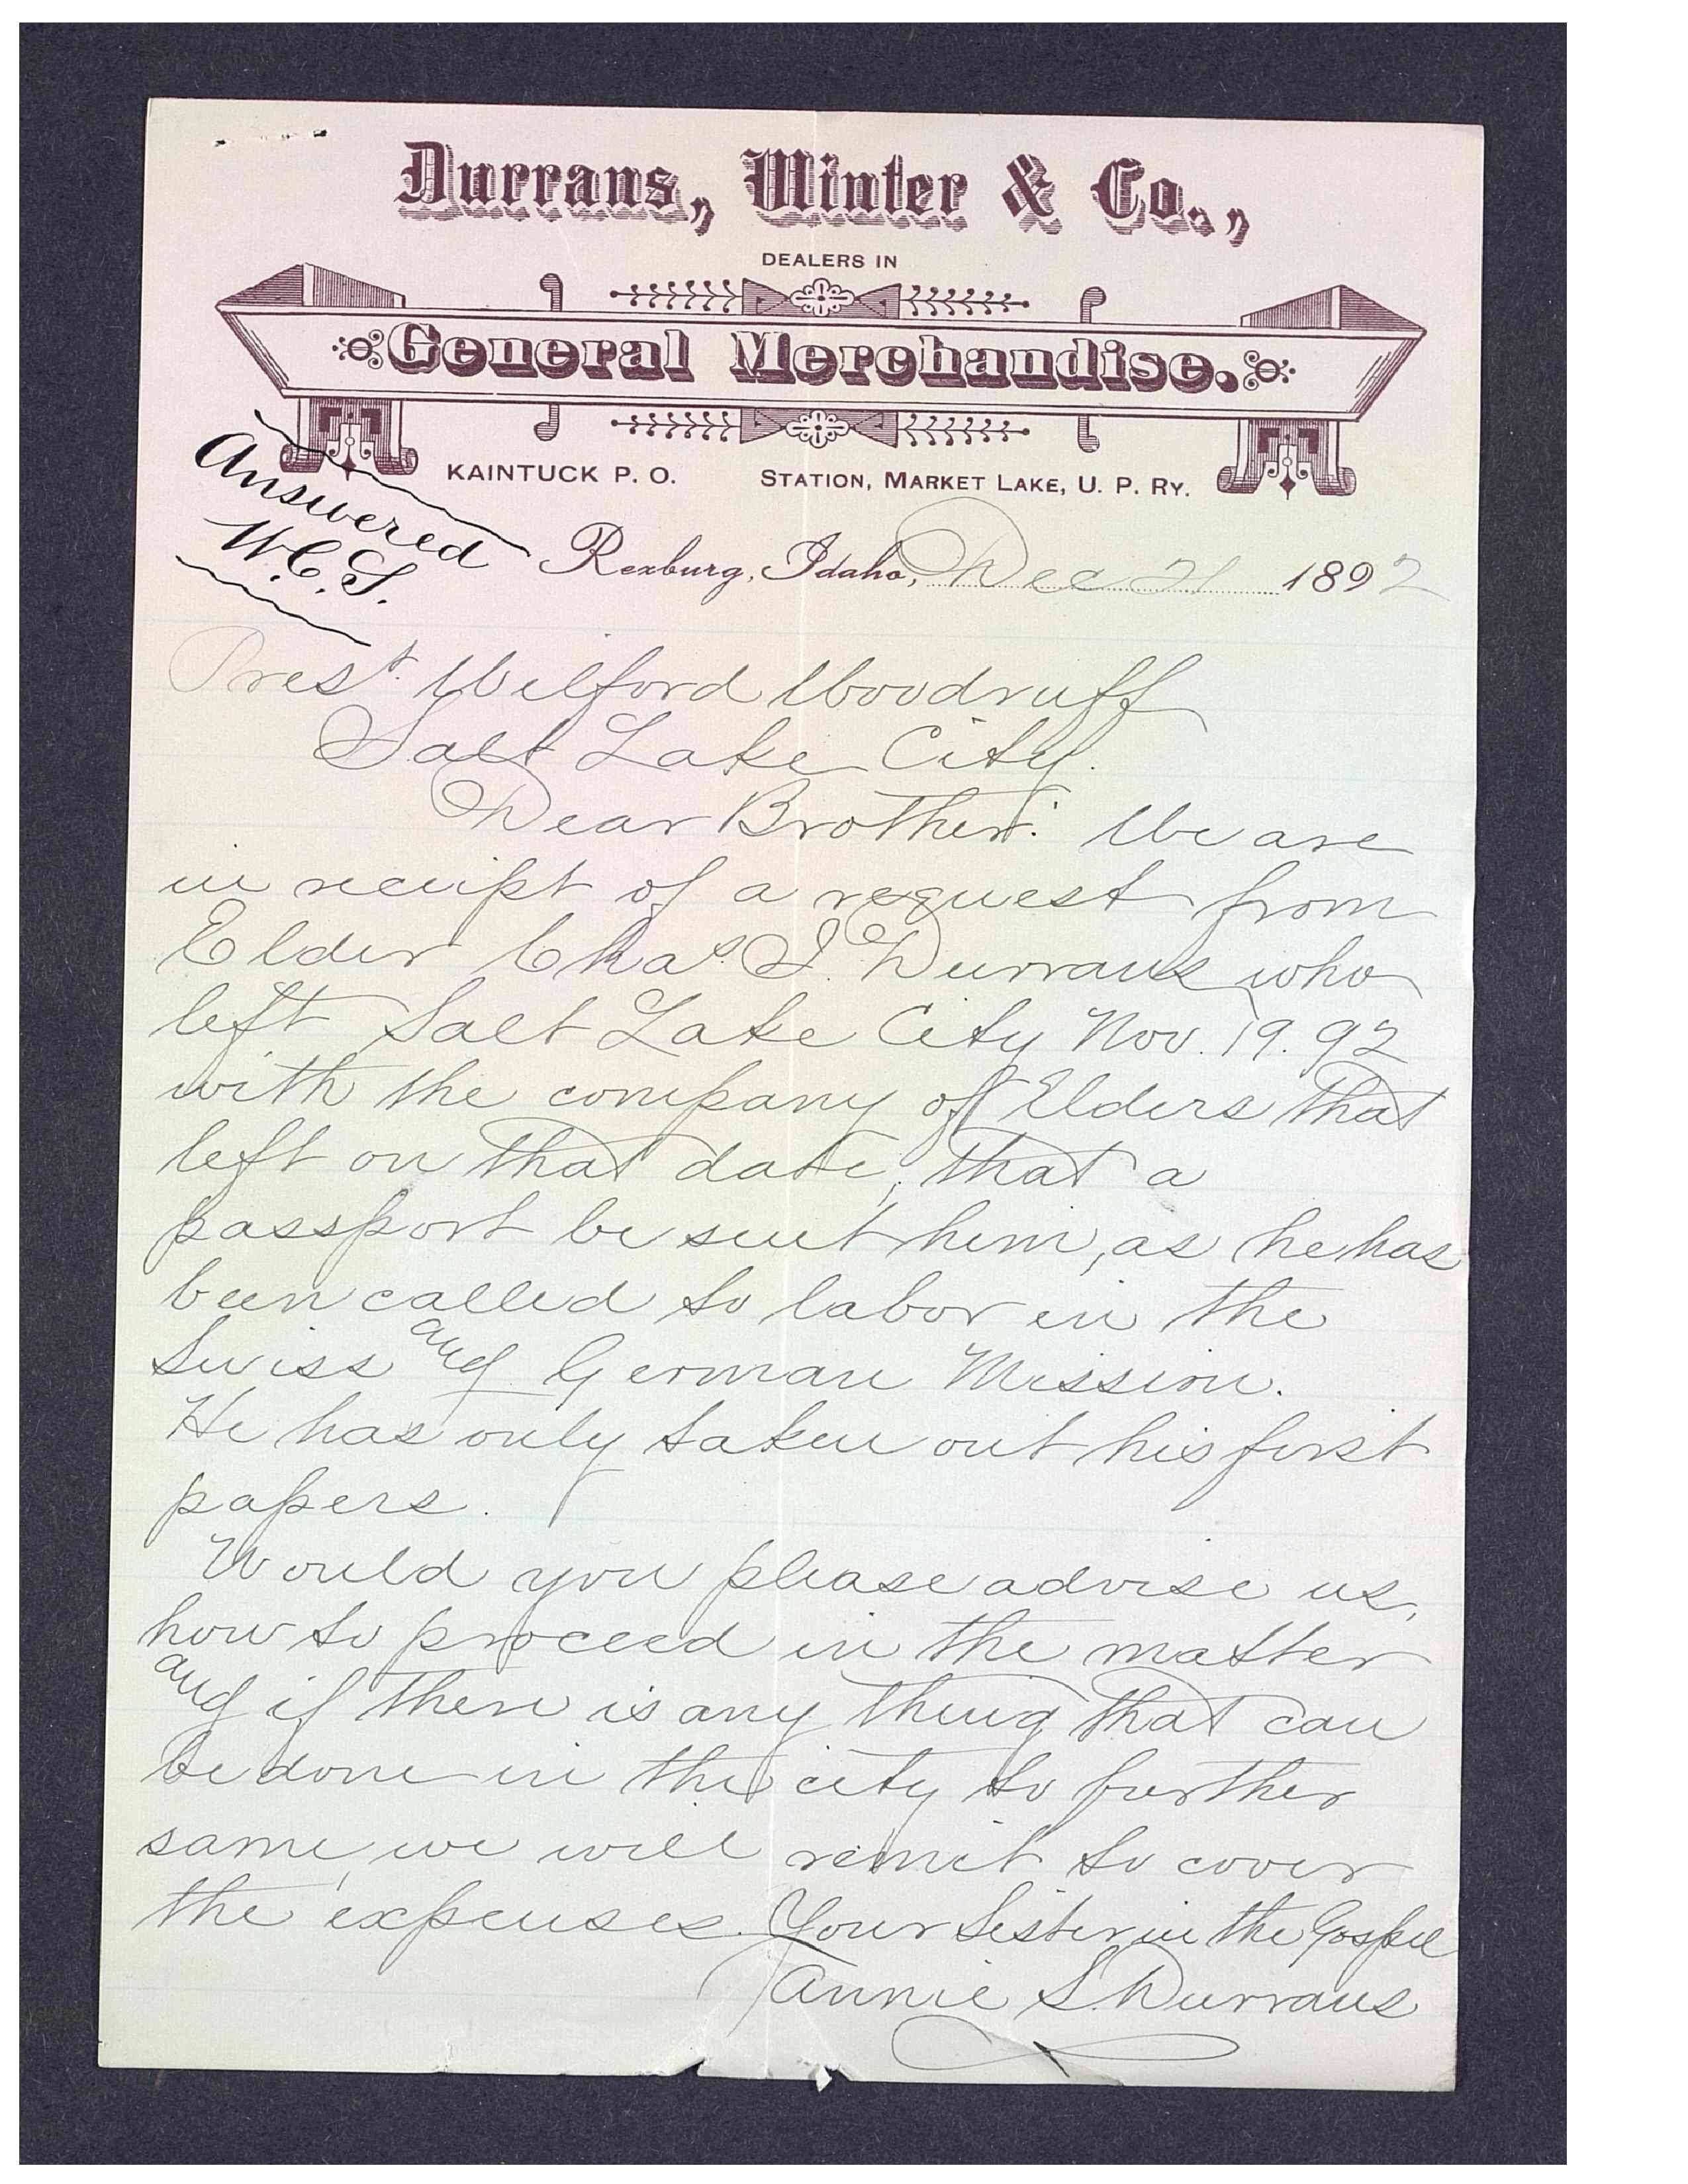 Durrans, Winter & Co.,
DEALERS IN
General Merchandise.
KAINTUCK P. O. STATION, MARKET LAKE, U. P. RY.
Answered
W.C.S.
Rexburg, Idaho, Dec 21 1892
Prest. Wilford Woodruff
Salt Lake City.
Dear Brother: We are
in receipt of a request from
Elder Chas. I. Durrans who
left Salt Lake City Nov. 19. 92
with the company of Elders that
left on that date, that a
passport be sent him, as he has
been called to labor in the
Swiss and German Mission.
He has only taken out his first
papers.
Would you please advise us,
how to proceed in the matter
and if there is any thing that can
be done in the city to further
same, we will remit to cover
the expenses. Your Sister in the Gospel
Annie S. Durrans